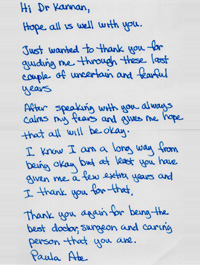 Hi Dr Kannan,
Hope all is well with you.
Just wanted to thank you for
guiding me through these last
couple of uncertain and fearful
years
After speaking with you always
calms my fears and gives me hope
that all will be okay.
I know I am a long way from
being okay but at least you have
given me a few extra years and
I thank you for that.
Thank you again for being the
best doctor, surgeon and caring
person that you are.
Paula